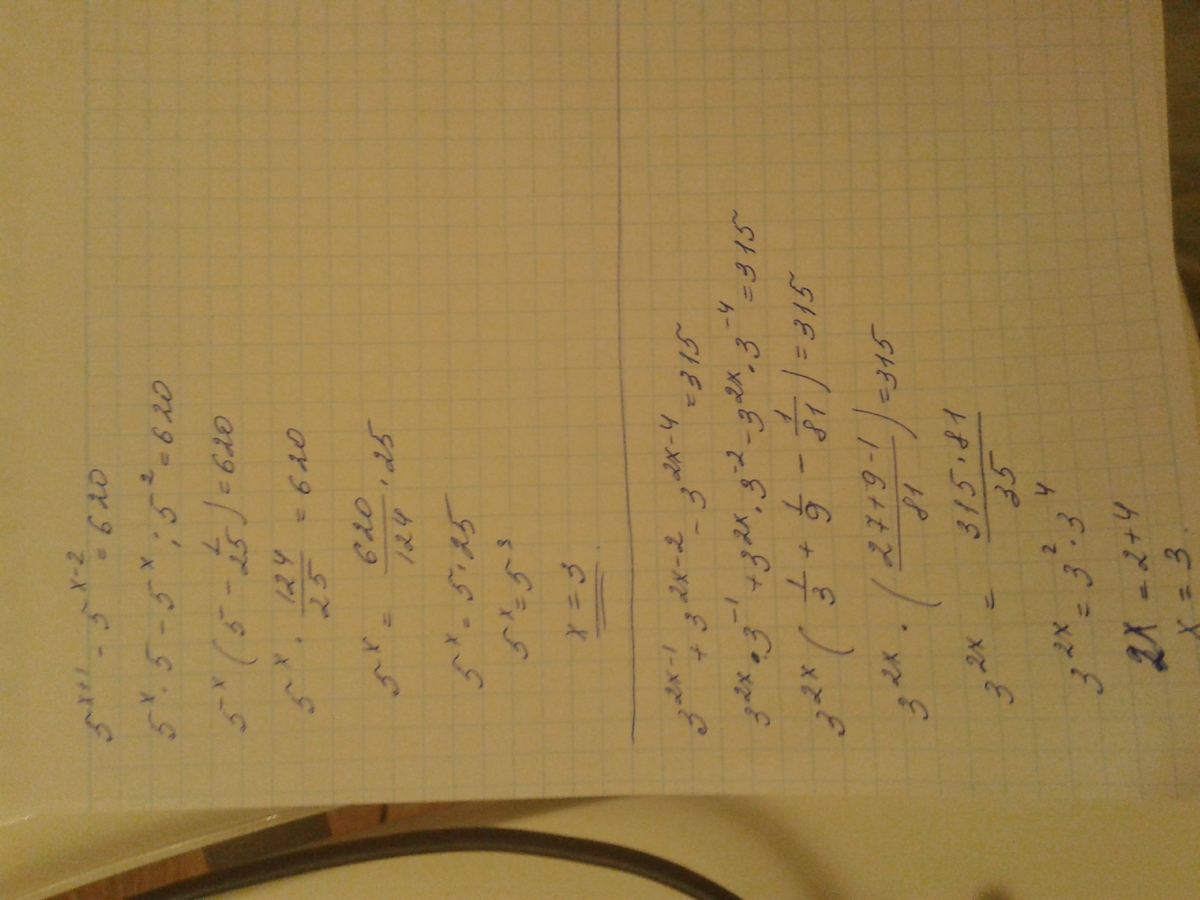 5^{x+1} - 5^{x-2} = 620
5^x · 5 - 5^x : 5^2 = 620
5^x (5 - 1/25) = 620
5^x · 124/25 = 620
5^x = 620/124 · 25
5^x = 5 · 25
5^x = 5^3
x = 3
3^{2x-1} + 3^{2x-2} - 3^{2x-4} = 315
3^{2x} · 3^{-1} + 3^{2x} · 3^{-2} - 3^{2x} · 3^{-4} = 315
3^{2x} (1/3 + 1/9 - 1/81) = 315
3^{2x} · ((27+9-1)/81) = 315
3^{2x} = (315 · 81)/35
3^{2x} = 3^2 · 3^4
2x = 2+4
x = 3.